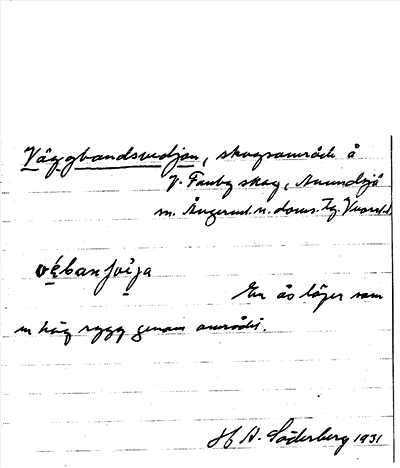 Väggbandsvedjan, skogsområde å
V. Fanby skog, Anundsjö
sn. Ångerml. n. doms. Tg.
En ås löper som
en hög rygg genom området.
H A. Söderberg 1931